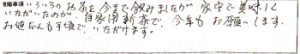 いろいろのお茶を今まで飲みましたが 家中で美味しく
いただいたのが、自家用新茶で、今年もお願いします。
お値だんも手頃で、いただけます。